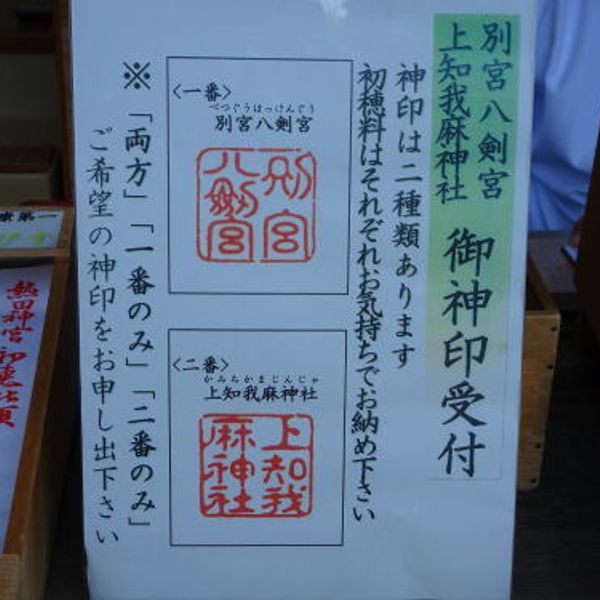 別宮八剣宮
上知我麻神社
御神印受付
神印は二種類あります
初穂料はそれぞれお気持ちでお納め下さい
<一番>
べつぐうはっけんぐう
別宮八剣宮
別宮
八剱宮
<二番>
かみちかまじんじゃ
上知我麻神社
上知我
麻神社
※「両方」「一番のみ」「二番のみ」
ご希望の神印をお申し出下さい
第一
熱田神宮初穂